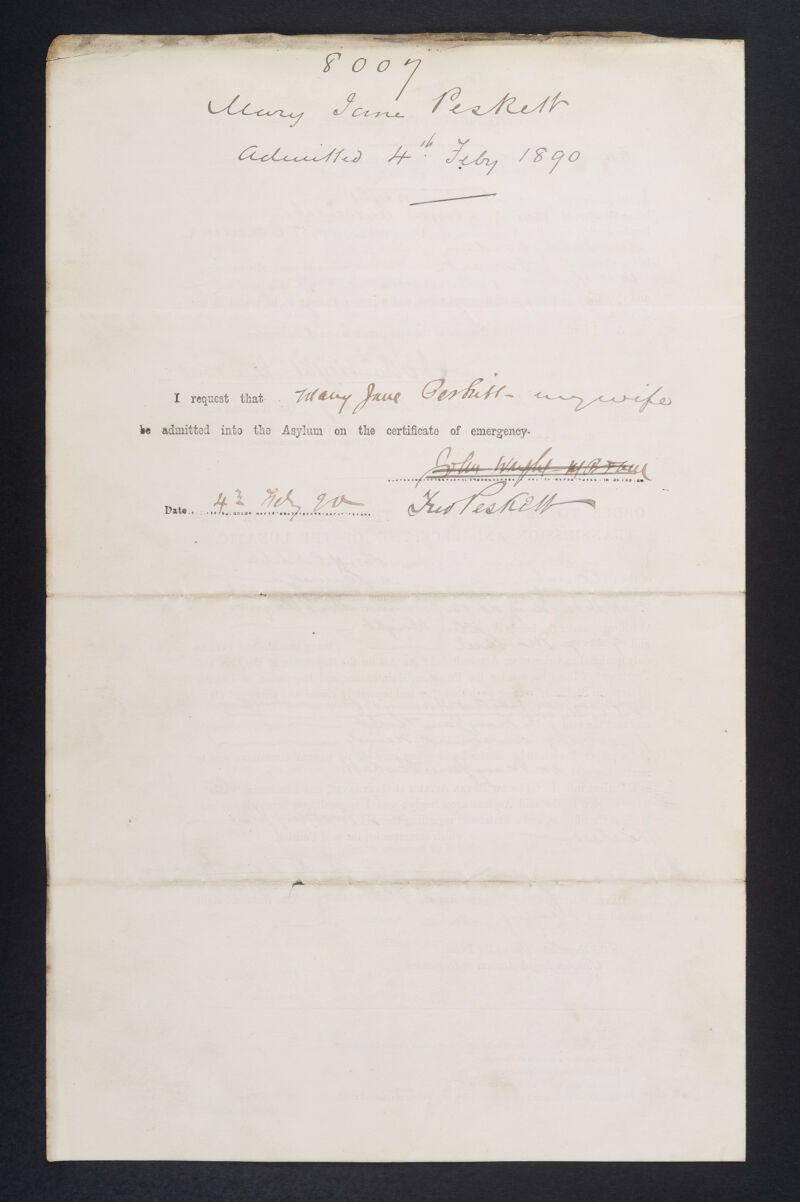 8007
Mary Jane Peskett
Admitted 4th Feby 1890
I request that Mary Jane Peskett my wife
be admitted into the Asylum on the certificate of emergency.
John Wright
Date 4th Feby 90 Jno Peskett